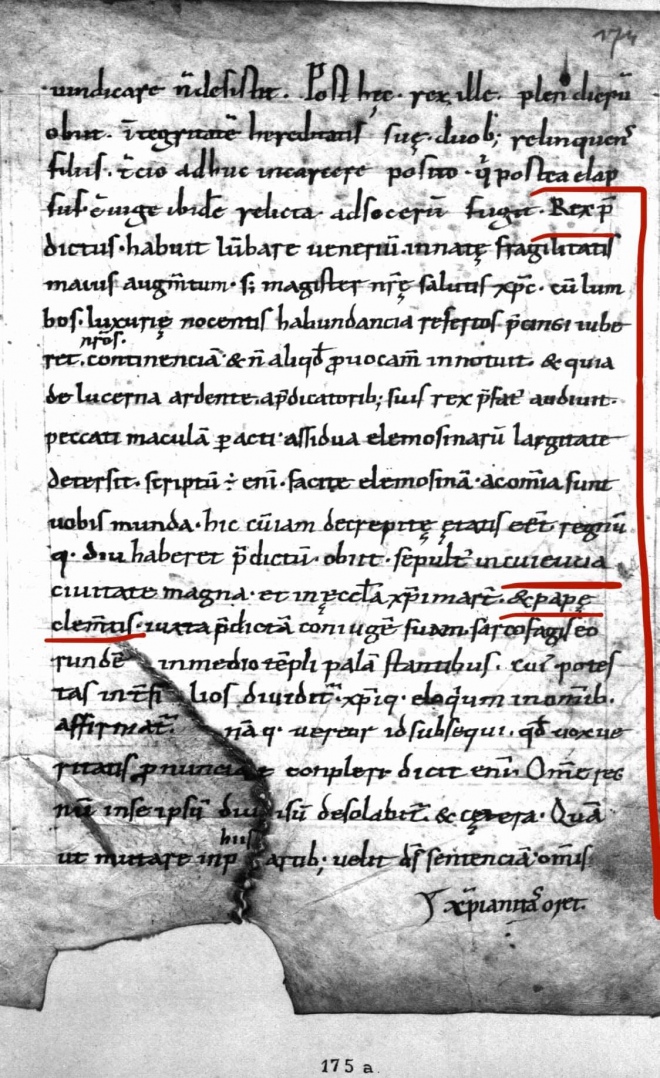 174
uindicare ñ desistit. Post hęc. rex ille. plen' dierũ
obiit. ĩtegritatẽ hereditatis suę. duob; relinquens
filiis. t̃cio adhuc incarcere posito. q̃ postea elap
sus. c̃iuge ibidẽ relicta. ad socerũ fugit. Rex p̃
dictus. habuit lũbare uenereũ. innatę fragilitatis
maius augm̃tum. s; magister nr̃ę salutis xp̃c. cũ lum
bos. luxurię nocentis habundancia refertos p̃cingi iube
nr̃os.
ret. continenciã & ñ aliqđ ꝓuocam̃ innotuit. & quia
de lucerna ardente. ap̃dicatorib; suis rex p̃fat' audiuit.
peccati maculã ꝑacti. assidua elemosinarũ largitate
detersit. scriptũ ÷ eni. facite elemosinã. acom̃ia sunt
uobis munda. hic cũiam decrepitę ętatis eẽt regnũ
q. diu haberet p̃dictũ. obiit. sepult' incuieuua
ciuitate magna. et in ęccl̃a xp̃i mart̃. & papę
clem̃tis. iuxta p̃dictã coniugẽ suam. sarcofagis eo
rundẽ inmedio tẽpli palã stantibus. cui' potes
tas int̃ fi lios diuidit̃. xp̃iq. eloq̇um inom̃ib.
affirmat̃. nãq. uereor id subsequi. qđ uox ue
ritatis ꝓnuncia t conpleri dicit eni. Om̃e reg
nũ inse ipsũ diu isũ desolabit̃. & cętera. Quã
hiis
ut mutare in p artib; uelit dš sentenciã. omis
xp̃ianitas oret.
175 a